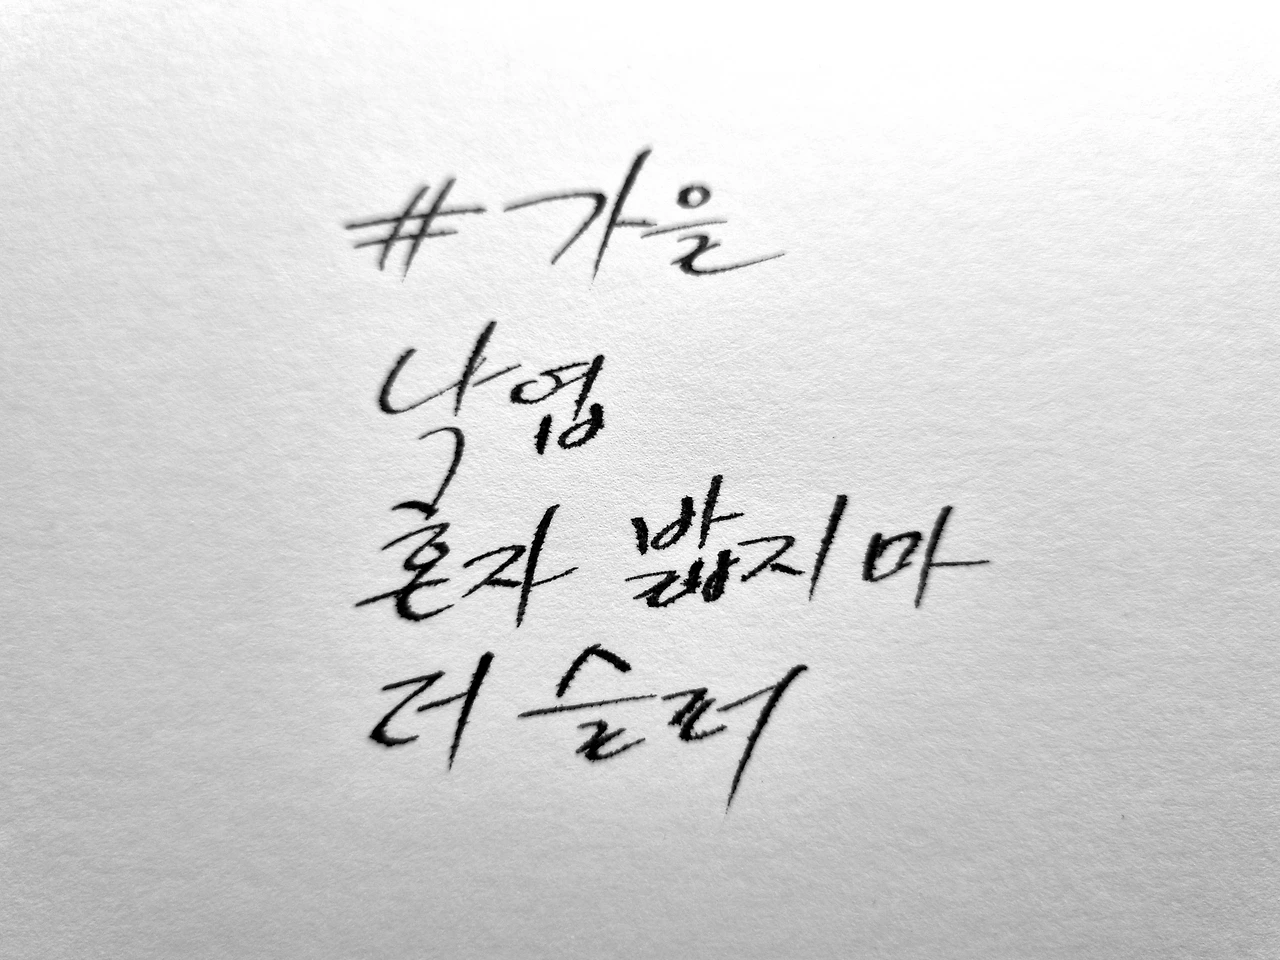 #가을
낙엽
혼자 밟지마
더 슬퍼